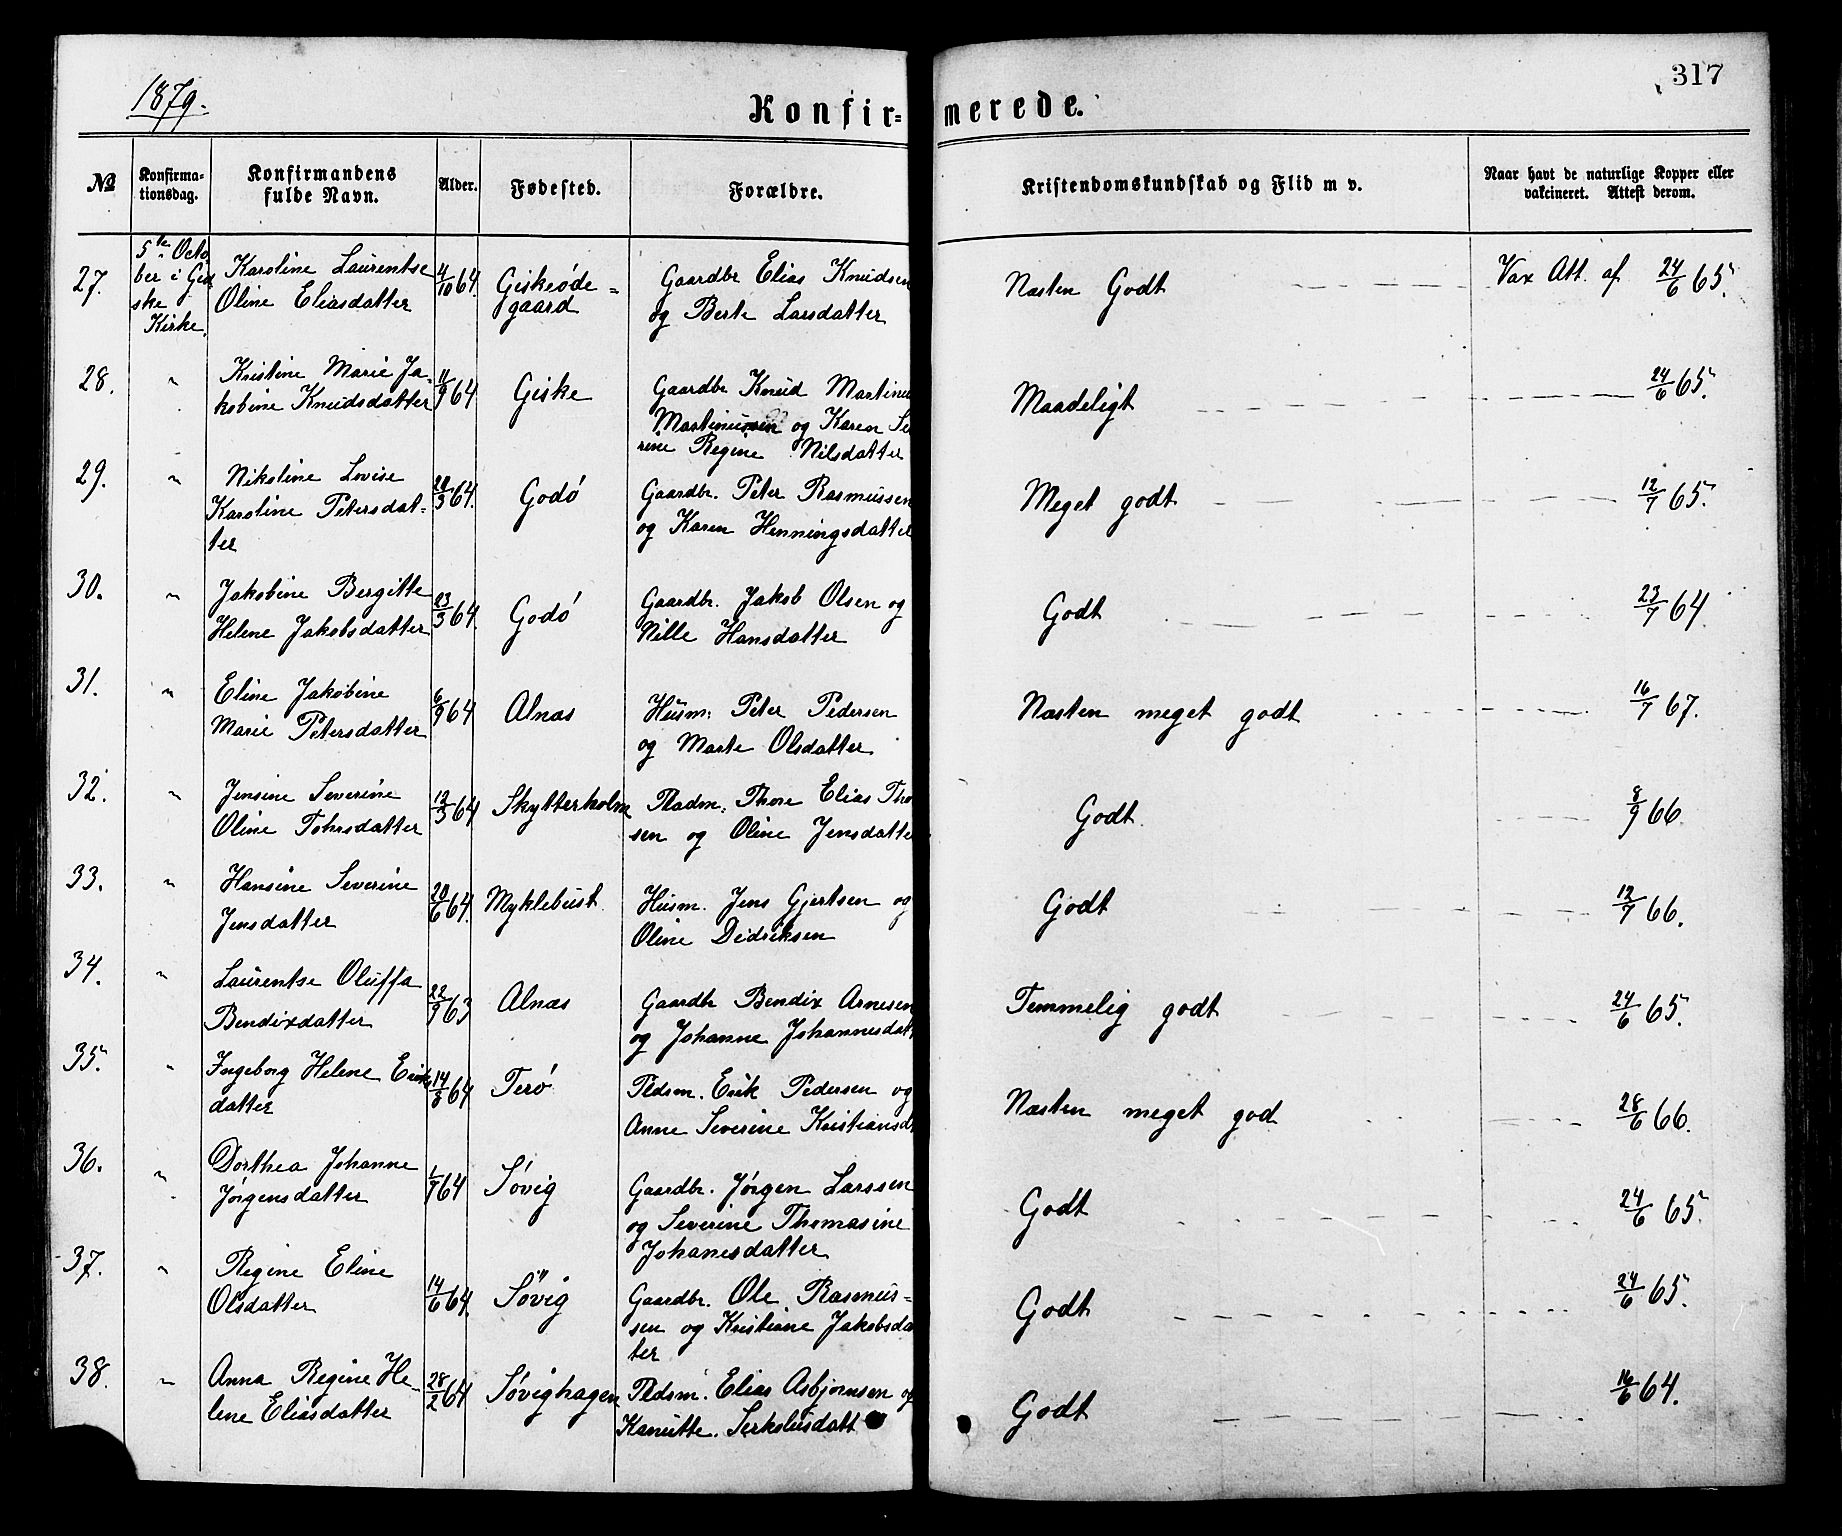 1879.
317
Konfir- merede.
№
Konfirma-
tionsdag.
Konfirmandens
fulde Navn.
Alder.
Fødested.
Forældre.
Kristendomskundskab og Flid m v.
Naar havt de naturlige Kopper eller
vakcineret. Attest derom.
27. 5te Octo
ber i Gis
ske
Kirke.
Karoline Laurentse
Oline Eliasdatter
4/10 64.
Giskeøde=
gaard
Gaardbr Elias Knudsen
og Berte Larsdatter
Næsten Godt
Vax Att. af 24/6 65.
28. "
Kristine Marie Ja-
kobine Knudsdatter
11/9 64
Giske
Gaardbr Knud Martinus
Martinussen og Karen Se
rine Regine Nilsdatter
Maadeligt
24/6 65.
29. "
Nikoline Lovise
Karoline Petersdat-
ter
28/3 64.
Godø
Gaardbr. Peter Rasmussen
og Karen Henningsdatter
Meget godt
12/7 65.
30. "
Jakobine Bergitte
Helene Jakobsdatter
23/3 64.
Godø
Gaardbr. Jakob Olsen og
Nille Hansdatter
Godt
23/7 64.
31. "
Eline Jakobine
Marie Petersdatter
6/9 64
Alnæs
Husm: Peter Pedersen
og Marte Olsdatter
Næsten meget godt
16/7 67.
32. "
Jensine Severine
Oline Tohrsdatter
12/3 64
Skytterholm
Pladm: Thore Elias Tho
sen og Oline Jensdatte
Godt.
8/9 66.
33. "
Hansine Severine
Jensdatter
20/6 64.
Myklebust
Husm. Jens Gjertsen og
Oline Didriksen
Godt
12/7 66.
34. "
Laurentse Oluffa
Bendixdatter
22/9 63
Alnæs
Gaardbr Bendix Arnesen
og Johanne Johannesdat
Temmelig godt
24/6 65.
35. "
Ingeborg Helene Eriks
datter
14/8 64
Terø
Pldsm. Erik Pedersen og
Anne Severine Kristiansd
Næsten meget god
28/6 66.
36. "
Dorthea Johanne
Jørgensdatter
1/7 64
Søvig
Gaardbr. Jørgen Larssen
og Severine Thomasine
Johanesdatter
Godt
24/6 65.
37. "
Regine Eline
Olsdatter
14/6 64.
Søvig
Gaardbr. Ole Rasmus-
sen og Kristiane Jakobsda
ter
Godt
24/6 65.
38. "
Anna Regine He-
lene Eliasdatter
28/2 64
Søvighagen
Pldsm. Elias Asbjørnsen og
Kanutte. Serkolusdatt
Godt
16/6 64.